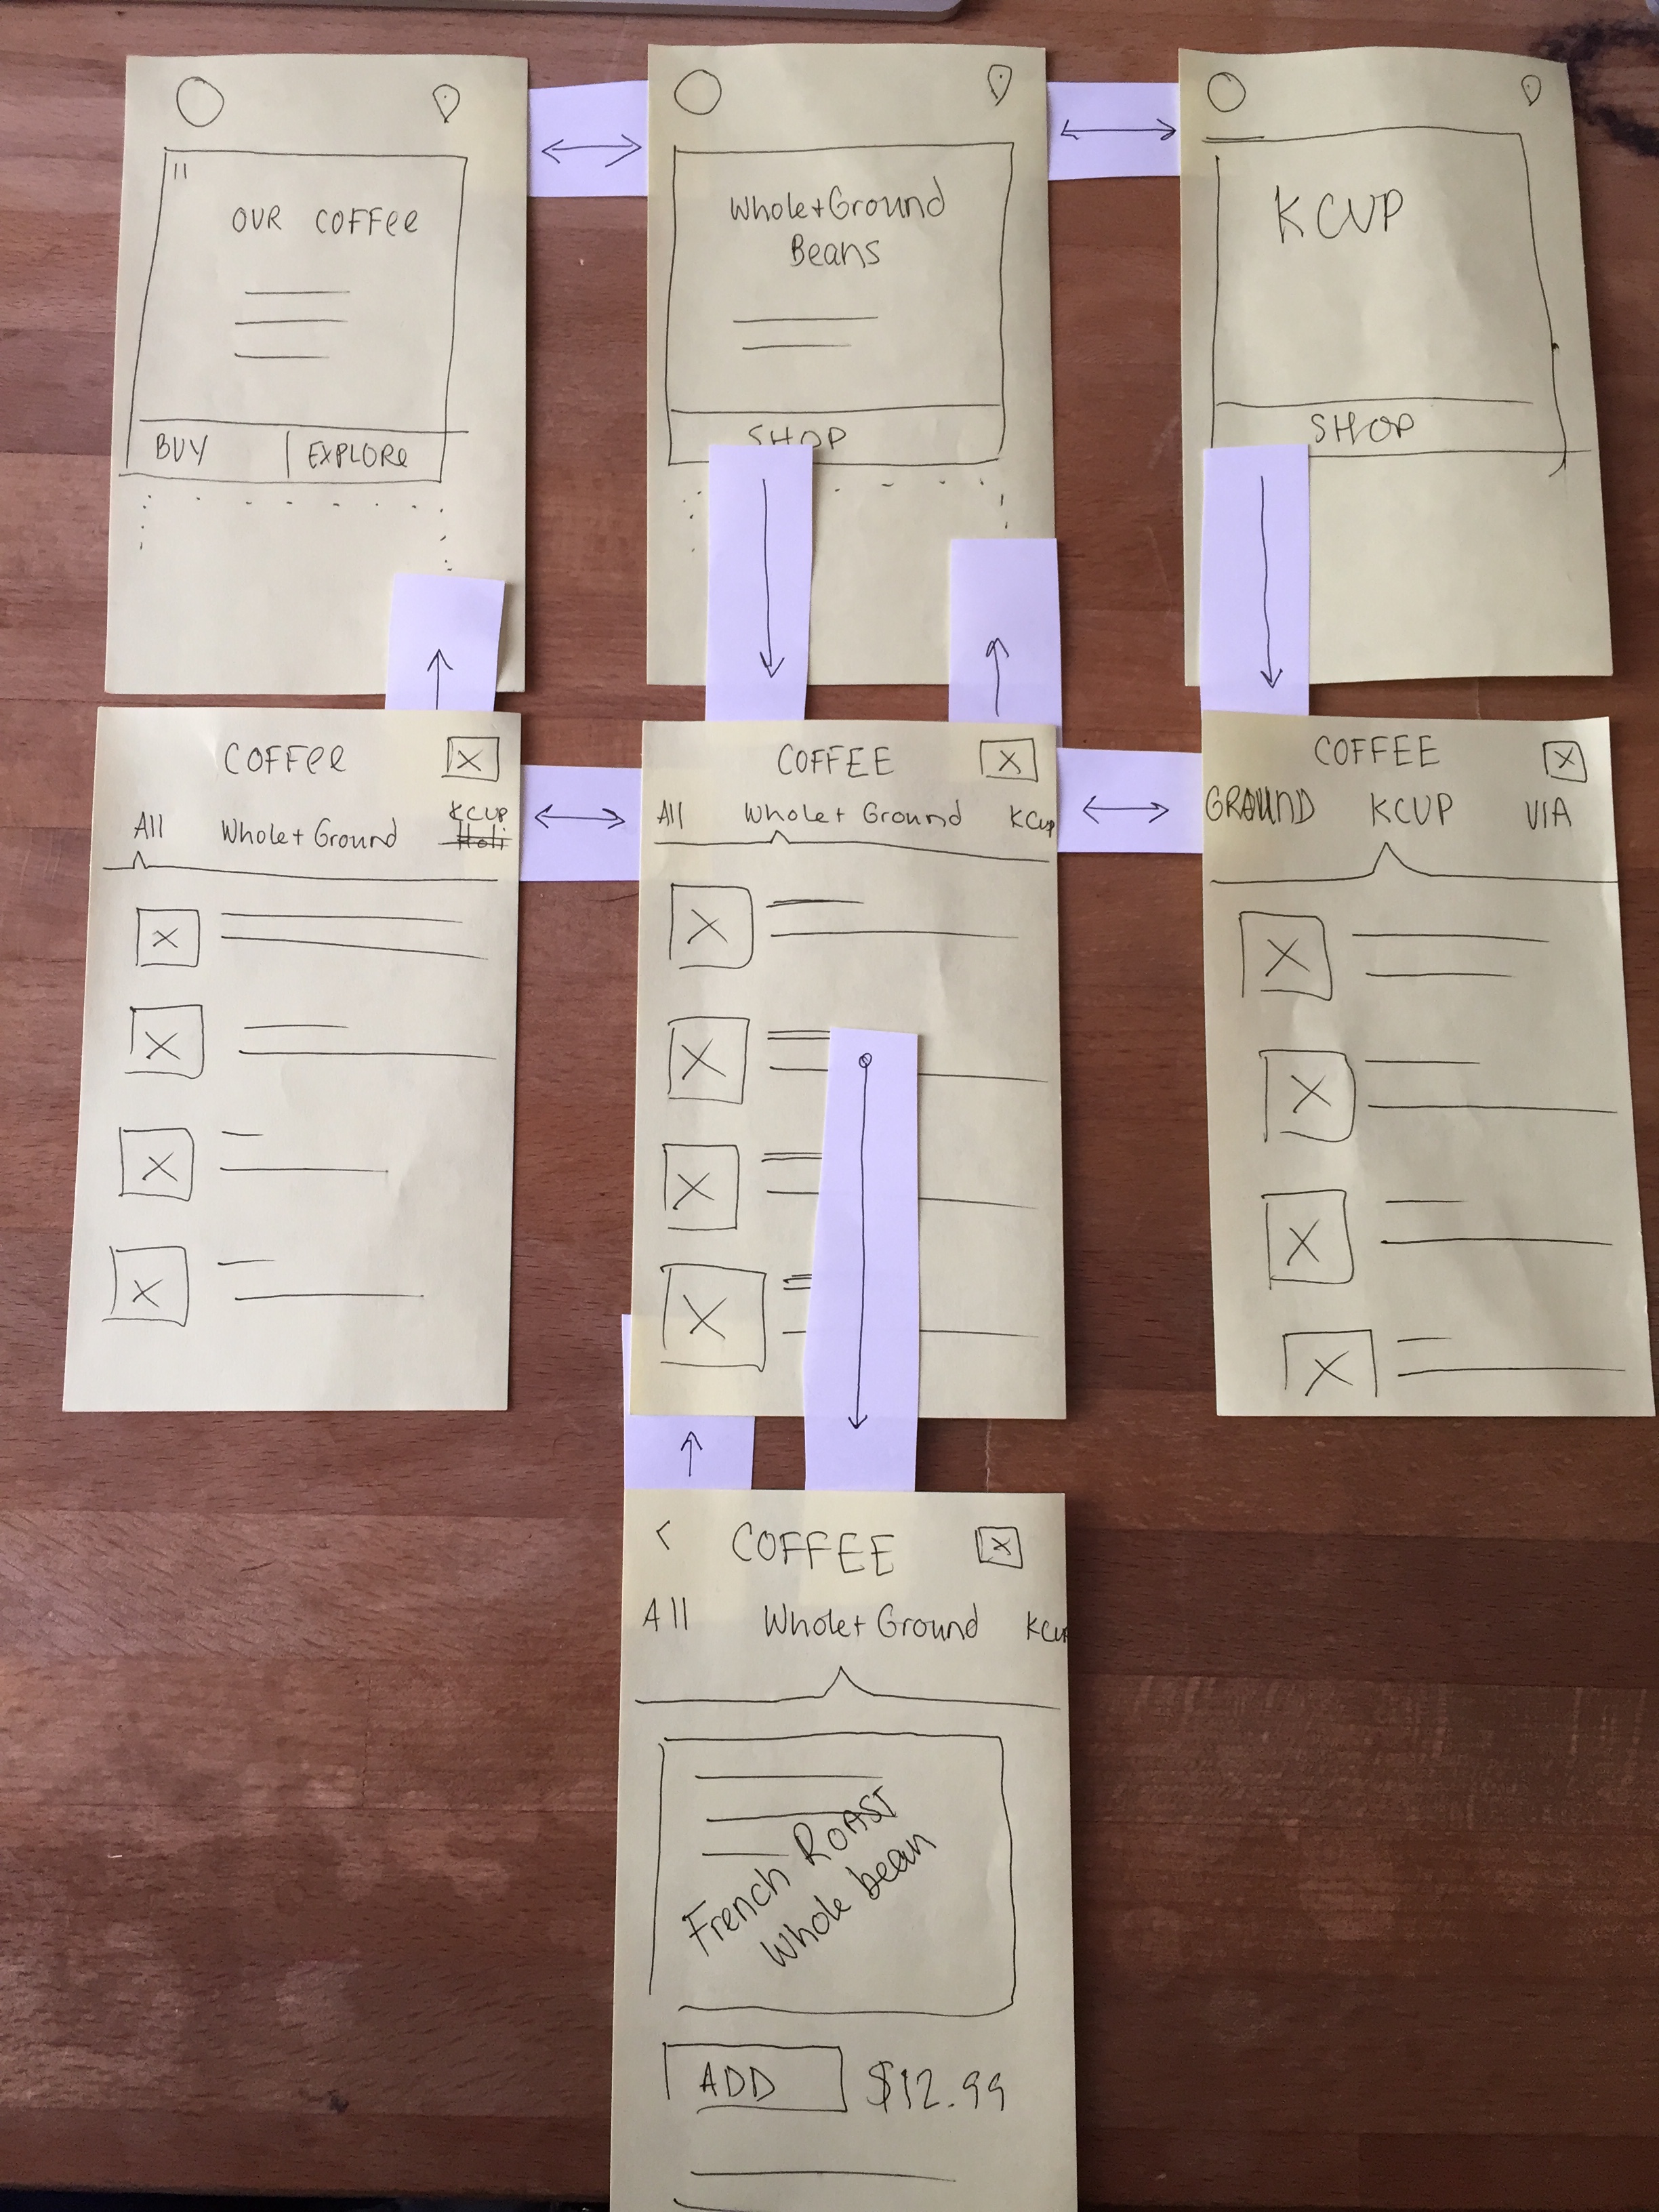 OUR COFFee
BUY | EXPLORe
Whole+Ground
Beans
SHOP
KCUP
SHOP
COFFee X
All Whole+ Ground KCUP
Holi
COFFEE X
All Whole+ Ground KCup
COFFEE X
GROUND KCUP VIA
< COFFEE X
All Whole+ Ground KCup
French ROAST
Whole bean
ADD $12.99